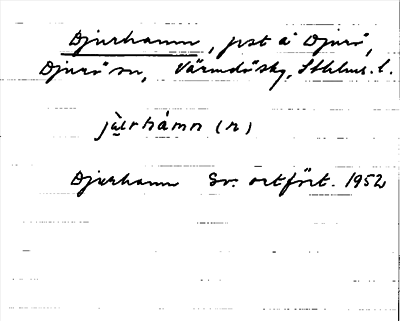 Djurhamn, pst å Djurö,
Djurö sn, Värmdö skg, Sthlms. l.
jù̬rhámn (n)
Djurhamn Sv. ortfört. 1952